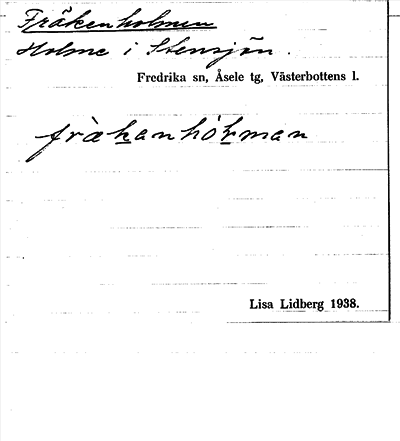 Fräkenholmen
Holme i Stensjön.
Fredrika sn, Åsele tg, Västerbottens l.
Lisa Lidberg 1938.